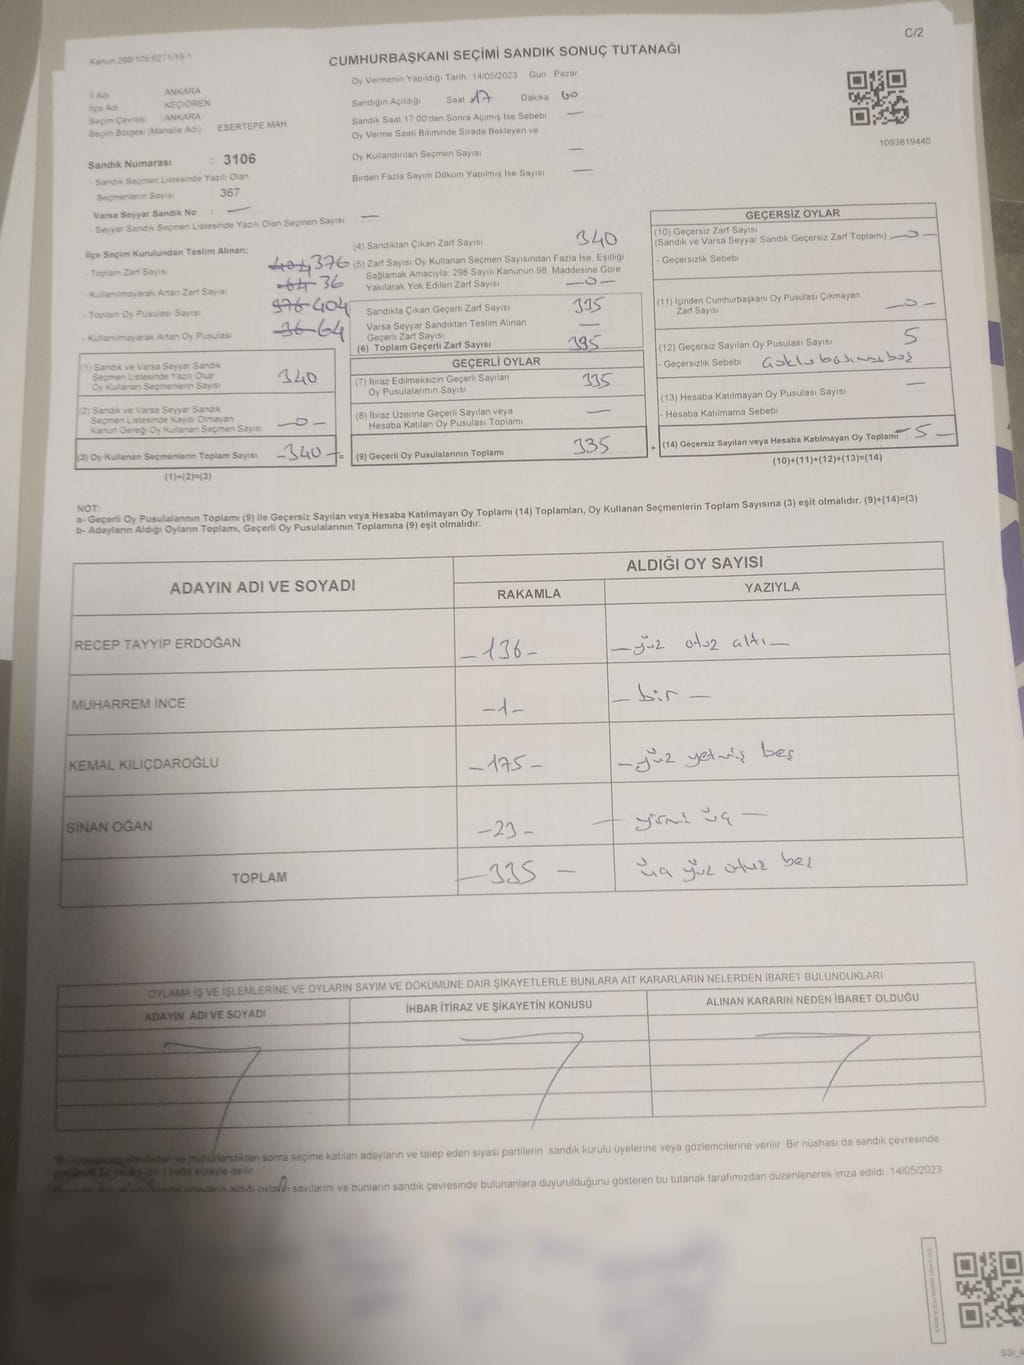 C/2
Kanun 298/105;6271/16-1
CUMHURBAŞKANI SEÇİMİ SANDIK SONUÇ TUTANAĞI
Oy Vermenin Yapıldığı Tarih 14/05/2023 Gün Pazar
İl Adı ANKARA
İlçe Adı KEÇİÖREN
Seçim Çevresi : ANKARA
Seçim Bölgesi (Mahalle Adı) ESERTEPE MAH
Sandığın Açıldığı Saat 17 Dakika 00
Sandık Saat 17:00'den Sonra Açımış İse Sebebi —
Oy Verme Saati Bitiminde Sırada Bekleyen ve
Oy Kullandırılan Seçmen Sayısı —
Birden Fazla Sayım Döküm Yapılmış İse Sayısı —
1093819440
Sandık Numarası : 3106
- Sandık Seçmen Listesinde Yazılı Olan
Seçmenlerin Sayısı : 367
Varsa Seyyar Sandık No : —
- Seyyar Sandık Seçmen Listesinde Yazılı Olan Seçmen Sayısı —
İlçe Seçim Kurulundan Teslim Alınan;
- Toplam Zarf Sayısı 404 376
- Kullanılmayarak Artan Zarf Sayısı 64 36
- Toplam Oy Pusulası Sayısı 376 404
- Kullanılmayarak Artan Oy Pusulası 36 64
(1) Sandık ve Varsa Seyyar Sandık
Seçmen Listesinde Yazılı Olup
Oy Kullanan Seçmenlerin Sayısı 340
(2) Sandık ve Varsa Seyyar Sandık
Seçmen Listesinde Kayıtlı Olmayan
Kanun Gereği Oy Kullanan Seçmen Sayısı —0—
(3) Oy Kullanan Seçmenlerin Toplam Sayısı -340-
=
(1)+(2)=(3)
(4) Sandıktan Çıkan Zarf Sayısı 340
(5) Zarf Sayısı Oy Kullanan Seçmen Sayısından Fazla İse, Eşitliği
Sağlamak Amacıyla, 298 Sayılı Kanunun 98. Maddesine Göre
Yakılarak Yok Edilen Zarf Sayısı —0—
Sandıkta Çıkan Geçerli Zarf Sayısı 335
Varsa Seyyar Sandıktan Teslim Alınan
Geçerli Zarf Sayısı —
(6) Toplam Geçerli Zarf Sayısı 335
GEÇERLİ OYLAR
(7) İtiraz Edilmeksizin Geçerli Sayılan
Oy Pusulalarının Sayısı 335
(8) İtiraz Üzerine Geçerli Sayılan veya
Hesaba Katılan Oy Pusulası Toplamı —
(9) Geçerli Oy Pusulalarının Toplamı 335
+
GEÇERSİZ OYLAR
(10) Geçersiz Zarf Sayısı
(Sandık ve Varsa Seyyar Sandık Geçersiz Zarf Toplamı) —0—
- Geçersizlik Sebebi
(11) İçinden Cumhurbaşkanı Oy Pusulası Çıkmayan
Zarf Sayısı —0—
(12) Geçersiz Sayılan Oy Pusulası Sayısı 5
- Geçersizlik Sebebi
(13) Hesaba Katılmayan Oy Pusulası Sayısı —
- Hesaba Katılmama Sebebi
(14) Geçersiz Sayılan veya Hesaba Katılmayan Oy Toplamı -5-
(10)+(11)+(12)+(13)=(14)
NOT:
a- Geçerli Oy Pusulalarının Toplamı (9) ile Geçersiz Sayılan veya Hesaba Katılmayan Oy Toplamı (14) Toplamları, Oy Kullanan Seçmenlerin Toplam Sayısına (3) eşit olmalıdır. (9)+(14)=(3)
b- Adayların Aldığı Oyların Toplamı, Geçerli Oy Pusulalarının Toplamına (9) eşit olmalıdır.
ADAYIN ADI VE SOYADI
ALDIĞI OY SAYISI
RAKAMLA YAZIYLA
RECEP TAYYİP ERDOĞAN -136- -yüz otuz altı-
MUHARREM İNCE -1- -bir-
KEMAL KILIÇDAROĞLU -175- -yüz yetmiş beş
SİNAN OĞAN -23- -yirmi üç-
TOPLAM -335- üç yüz otuz beş
OYLAMA İŞ VE İŞLEMLERİNE VE OYLARIN SAYIM VE DÖKÜMÜNE DAİR ŞİKAYETLERLE BUNLARA AİT KARARLARIN NELERDEN İBARET BULUNDUKLARI
ADAYIN ADI VE SOYADI İHBAR İTİRAZ VE ŞİKAYETİN KONUSU ALINAN KARARIN NEDEN İBARET OLDUĞU
mühürlendikten sonra seçime katılan adayların ve talep eden siyasi partilerin sandık kurulu üyelerine veya gözlemcilerine verilir. Bir nüshası da sandık çevresinde
hafta süreyle asılır.
aldığı oyların sayılarını ve bunların sandık çevresinde bulunanlara duyurulduğunu gösteren bu tutanak tarafımızdan düzenlenerek imza edildi. 14/05/2023